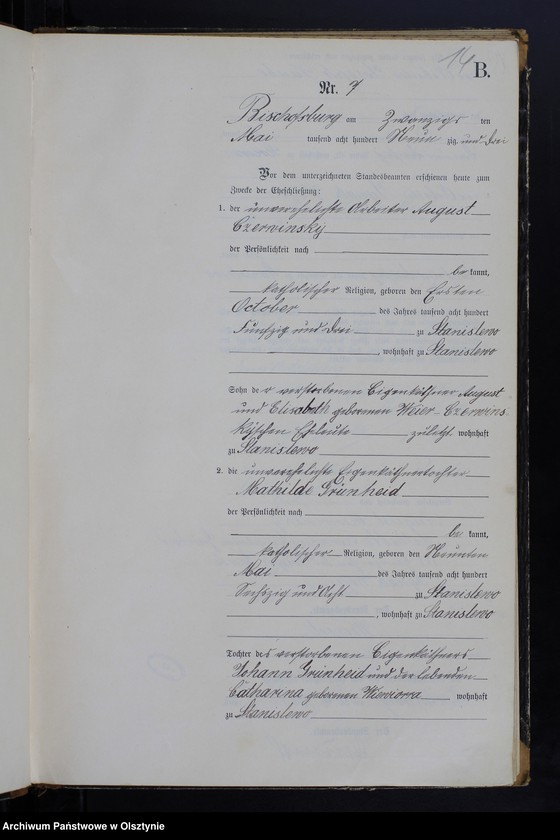 14
B.
Nr. 7
Bischofsburg am Zwanzigsten
Mai tausend acht hundert Neun zig und drei
Vor dem unterzeichneten Standesbeamten erschienen heute zum
Zwecke der Eheschließung:
1. der unverehelichte Arbeiter August
Czerwinsky
der Persönlichkeit nach
be kannt,
katholischer Religion, geboren den Ersten
October des Jahres tausend acht hundert
Fünfzig und drei zu Stanislewo
, wohnhaft zu Stanislewo
Sohn der verstorbenen Eigenkäthner August
und Elisabeth geborenen Weier-Czerwins
kyschen Eheleute zuletzt wohnhaft
zu Stanislewo
2. die unverehelichte Eigenkäthnertochter
Mathilde Grünheid
der Persönlichkeit nach
be kannt,
katholischer Religion, geboren den Neunten
Mai des Jahres tausend acht hundert
Sechszig und Acht zu Stanislewo
, wohnhaft zu Stanislewo
Tochter des verstorbenen Eigenkäthners
Johann Grünheid und der lebenden
Catharina geborenen Wieviorra wohnhaft
zu Stanislewo
Archiwum Państwowe w Olsztynie